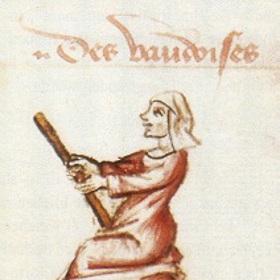 Des vaudoises